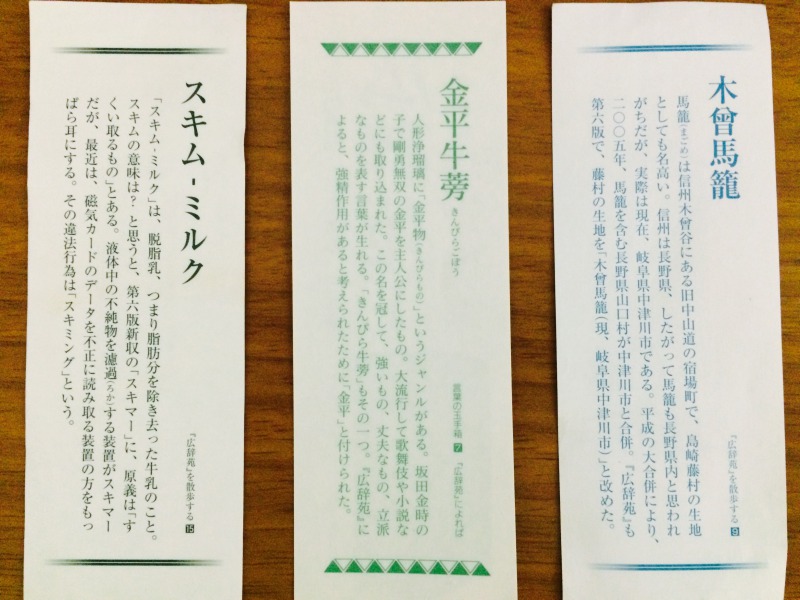 木曾馬籠
『広辞苑』を散歩する 9
馬籠(まごめ)は信州木曾谷にある旧中山道の宿場町で、島崎藤村の生地
としても名高い。信州は長野県、したがって馬籠も長野県内と思われ
がちだが、実際は現在、岐阜県中津川市である。平成の大合併により、
二〇〇五年、馬籠を含む長野県山口村が中津川市と合併。『広辞苑』も
第六版で、藤村の生地を「木曾馬籠(現、岐阜県中津川市)」と改めた。
金平牛蒡 きんぴらごぼう
言葉の玉手箱 7 『広辞苑』によれば
人形浄瑠璃に「金平物(きんぴらもの)」というジャンルがある。坂田金時の
子で剛勇無双の金平を主人公にしたもの。大流行して歌舞伎や小説な
どにも取り込まれた。この名を冠して、強いもの、丈夫なもの、立派
なものを表す言葉が生れる。「きんぴら牛蒡」もその一つ。『広辞苑』に
よると、強精作用があると考えられたために「金平」と付けられた。
スキム-ミルク
『広辞苑』を散歩する 15
「スキム-ミルク」は、脱脂乳、つまり脂肪分を除き去った牛乳のこと。
スキムの意味は? と思うと、第六版新収の「スキマー」に、原義は「す
くい取るもの」とある。液体中の不純物を濾過(ろか)する装置がスキマー
だが、最近は、磁気カードのデータを不正に読み取る装置の方をもっ
ぱら耳にする。その違法行為は「スキミング」という。